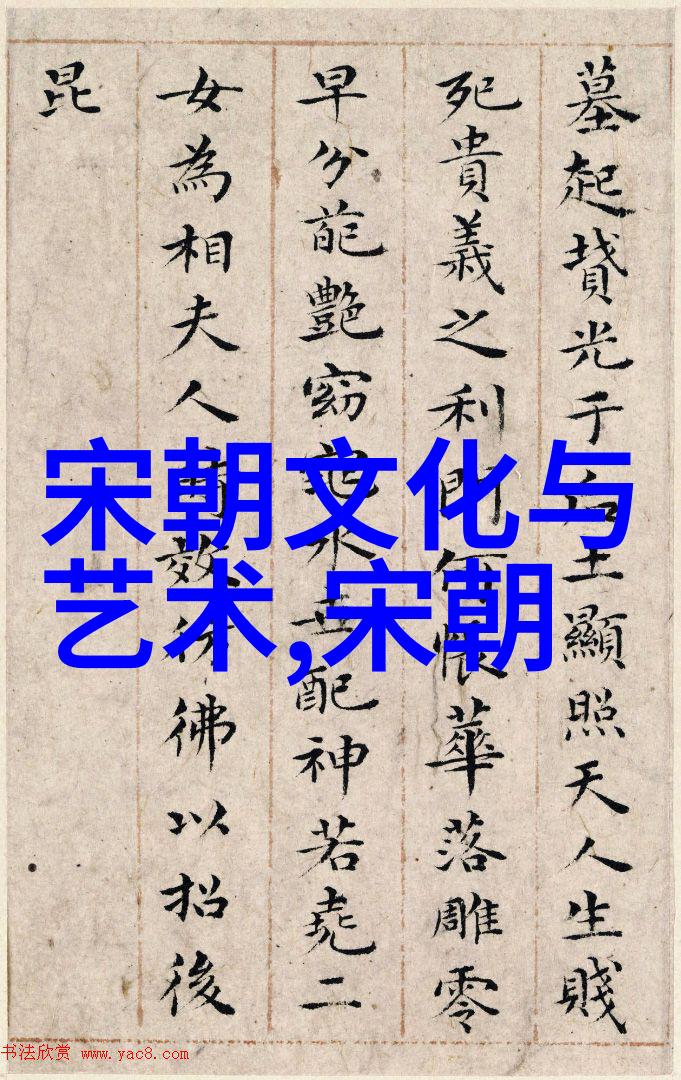 墓起墳光于后土顯照天人生賤
死貴義之利門何悵華落雕零
早分葩豔窈永世配神若堯二
女為相夫人效彷彿以招後
昆
宋朝文化与
艺术,宋朝
书法欣赏 www.yac8.com